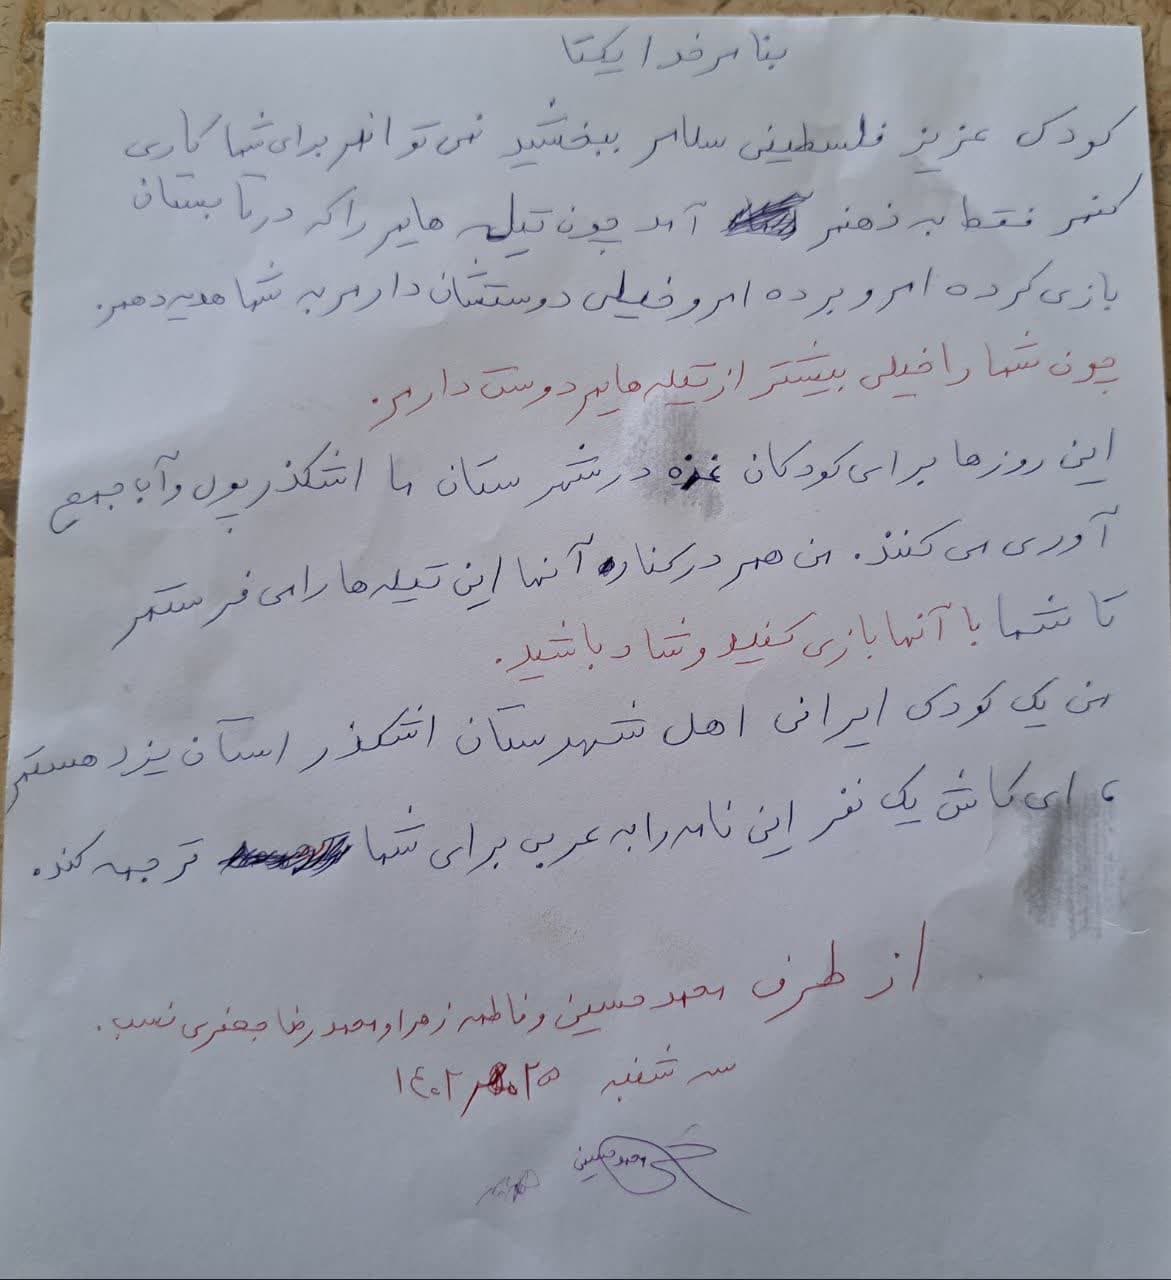 بنام خدا یکتا
کودک عزیز فلسطینی سلام ببخشید نمی توانم برای شما کاری
کنم فقط به ذهنم آمد چون تیله هایم را که در تابستان
بازی کرده ام و برده ام و خیلی دوستشان دارم به شما هدیه دهم.
چون شما را خیلی بیشتر از تیله هایم دوست دارم.
این روزها برای کودکان غزه در شهرستان ما اشکذر پول و آب جمع
آوری می کنند. من هم در کنار آنها این تیله ها را می فرستم
تا شما با آنها بازی کنید و شاد باشید.
من یک کودک ایرانی اهل شهرستان اشکذر استان یزد هستم
، ای کاش یک نفر این نامه را به عربی برای شما ترجمه کند.
از طرف محمدحسین و فاطمه زهرا و محمدرضا جعفری نسب.
سه شنبه ۲۵ مهر ۱۴۰۲
محمدحسین